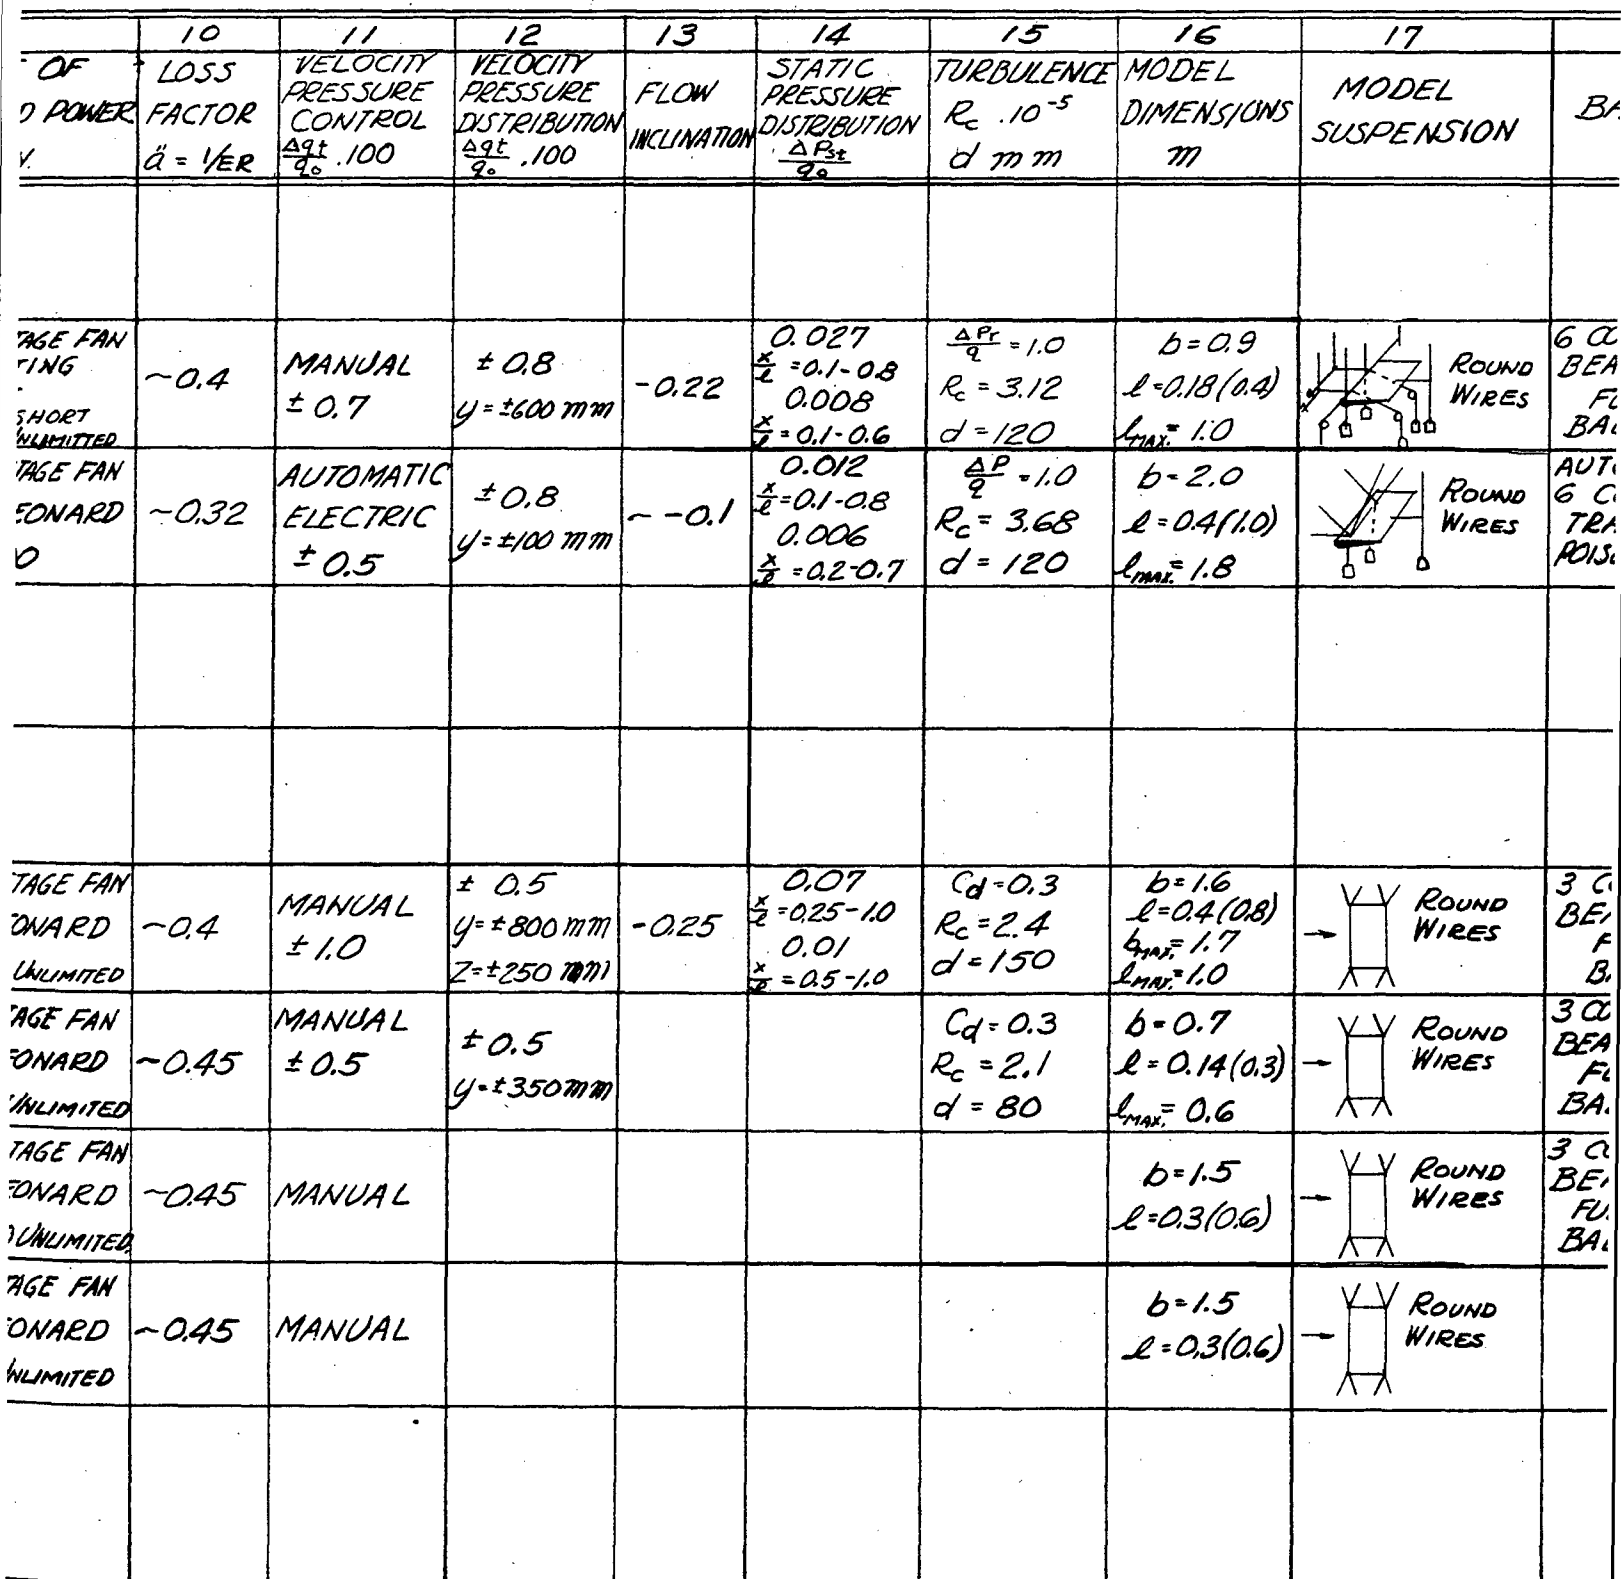 10 11 12 13 14 15 16 17
OF
POWER
LOSS
FACTOR
ä = 1/ER
VELOCITY
PRESSURE
CONTROL
Δqt/q₀ .100
VELOCITY
PRESSURE
DISTRIBUTION
Δqt/q₀ .100
FLOW
INCLINATION
STATIC
PRESSURE
DISTRIBUTION
ΔPst/q₀
TURBULENCE
Rc .10⁻⁵
d mm
MODEL
DIMENSIONS
m
MODEL
SUSPENSION
BA
TAGE FAN
TING
SHORT
UNLIMITTED
~0.4
MANUAL
± 0.7
± 0.8
y = ±600 mm
-0.22
0.027
x/l = 0.1-0.8
0.008
x/l = 0.1-0.6
ΔPr/q = 1.0
Rc = 3.12
d = 120
b = 0.9
l = 0.18(0.4)
lMAX. = 1.0
ROUND
WIRES
6 CO
BEA
FU
BAL
TAGE FAN
EONARD
O
~0.32
AUTOMATIC
ELECTRIC
± 0.5
± 0.8
y = ±100 mm
~-0.1
0.012
x/l = 0.1-0.8
0.006
x/l = 0.2-0.7
ΔP/q = 1.0
Rc = 3.68
d = 120
b = 2.0
l = 0.4(1.0)
lMAX. = 1.8
ROUND
WIRES
AUT
6 C
TRA
POIS
TAGE FAN
ONARD
UNLIMITED
~0.4
MANUAL
± 1.0
± 0.5
y = ±800 mm
Z = ±250 mm
-0.25
0.07
x/l = 0.25-1.0
0.01
x/l = 0.5-1.0
Cd = 0.3
Rc = 2.4
d = 150
b = 1.6
l = 0.4(0.8)
bMAX. = 1.7
lMAX. = 1.0
ROUND
WIRES
3 C
BEA
F
BA
AGE FAN
EONARD
UNLIMITED
~0.45
MANUAL
± 0.5
± 0.5
y = ±350 mm
Cd = 0.3
Rc = 2.1
d = 80
b = 0.7
l = 0.14(0.3)
lMAX. = 0.6
ROUND
WIRES
3 CO
BEA
FU
BA
TAGE FAN
EONARD
UNLIMITED
~0.45
MANUAL
b = 1.5
l = 0.3(0.6)
ROUND
WIRES
3 CO
BEA
FU
BAL
AGE FAN
ONARD
UNLIMITED
~0.45
MANUAL
b = 1.5
l = 0.3(0.6)
ROUND
WIRES